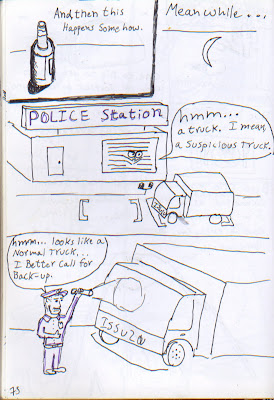 And then this
Happens Somehow.
Meanwhile...
POLICE Station
hmm...
a truck. I mean,
a Suspicious Truck.
hmm... looks like a
Normal Truck...
I Better Call for
Back-up.
ISSUZU
73